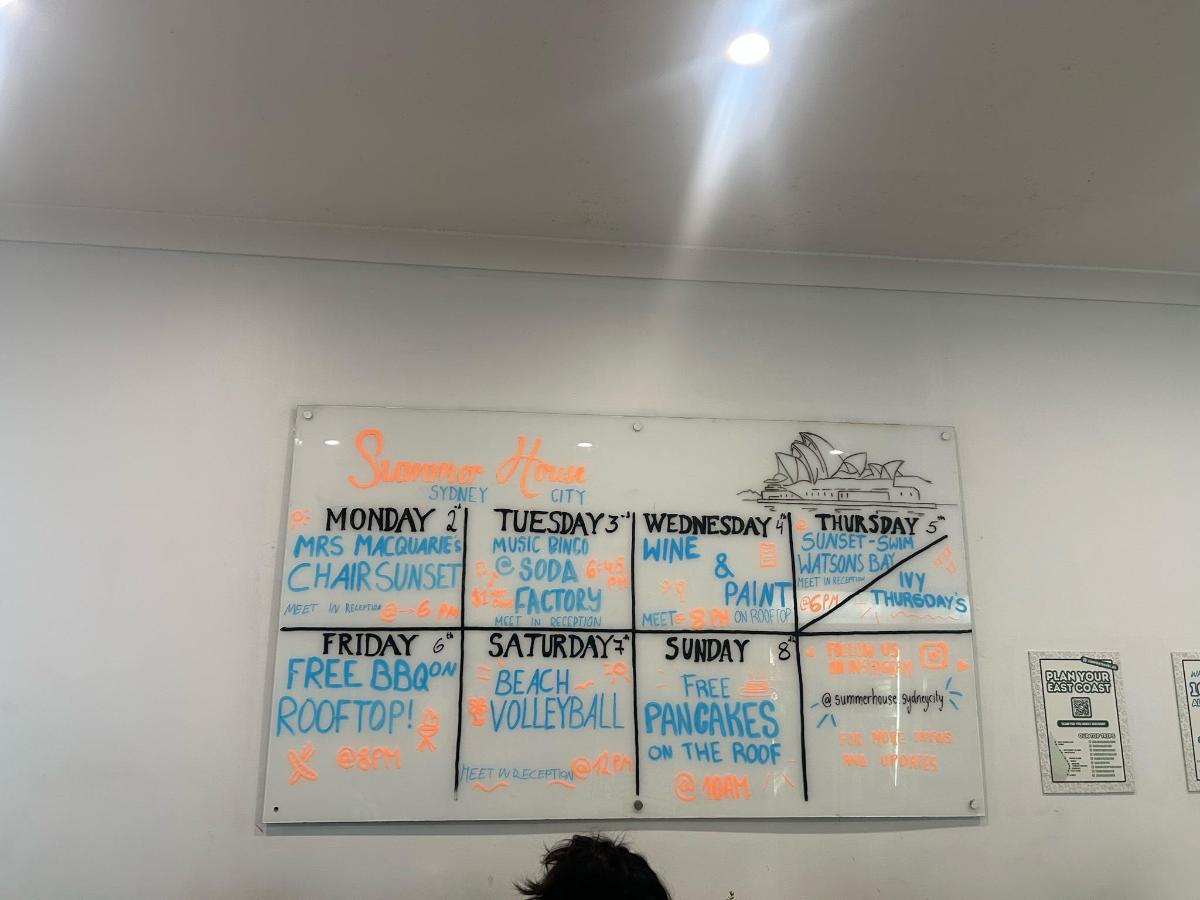 Summer House
SYDNEY CITY
MONDAY 2nd
MRS MACQUARIE's
CHAIR SUNSET
MEET IN RECEPTION @ → 6 PM
TUESDAY 3rd
MUSIC BINGO
@ SODA 6:45 PM
$1
FACTORY
MEET IN RECEPTION
WEDNESDAY 4th
WINE
&
PAINT
MEET @ 8 PM ON ROOFTOP
THURSDAY 5th
SUNSET-SWIM
WATSONS BAY
MEET IN RECEPTION
@6PM
IVY
THURSDAY'S
FRIDAY 6th
FREE BBQ ON
ROOFTOP!
@8PM
SATURDAY 7th
BEACH
VOLLEYBALL
MEET IN RECEPTION @12PM
SUNDAY 8th
FREE
PANCAKES
ON THE ROOF
@ 10AM
FOLLOW US
ON INSTAGRAM
@summerhouse.sydneycity
FOR MORE INFOS
AND UPDATES
PLAN YOUR
EAST COAST
OUR TOP TRIPS